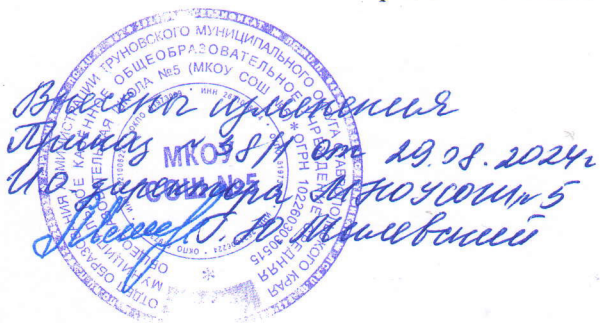 Внесены изменения
Приказ № 38/1 от 29.08.2024г
ИО директора МКОУСОШ№5
Г. Ю. Шилевский
ОТДЕЛ ОБРАЗОВАНИЯ АДМИНИСТРАЦИИ ТРУНОВСКОГО МУНИЦИПАЛЬНОГО ОКРУГА СТАВРОПОЛЬСКОГО КРАЯ
МУНИЦИПАЛЬНОЕ КАЗЕННОЕ ОБЩЕОБРАЗОВАТЕЛЬНОЕ УЧРЕЖДЕНИЕ СРЕДНЯЯ
ОБЩЕОБРАЗОВАТЕЛЬНАЯ ШКОЛА №5 (МКОУ СОШ №5) * ОГРН 1022603030515
МКОУ
СОШ №5